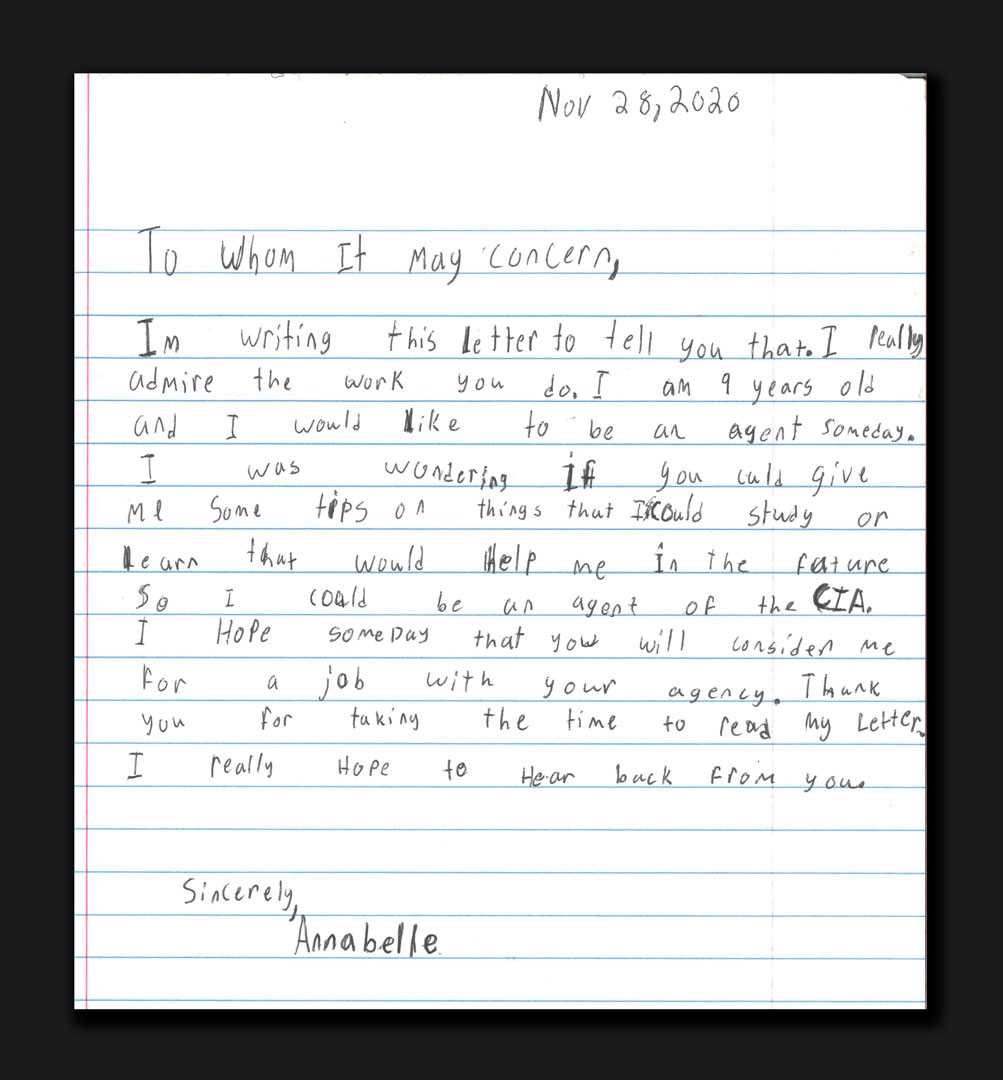 Nov 28, 2020
To Whom It May Concern,
Im writing this letter to tell you that. I really
admire the work you do. I am 9 years old
and I would like to be an agent someday.
I was wondering if you culd give
me some tips on things that I could study or
learn that would Help me in the fature
So I coald be an agent of the CIA.
I HoPe someDay that you will consider me
for a job with your agency. Thank
you for taking the time to read My Letter.
I really HoPe to Hear back from you.
Sincerely,
Annabelle